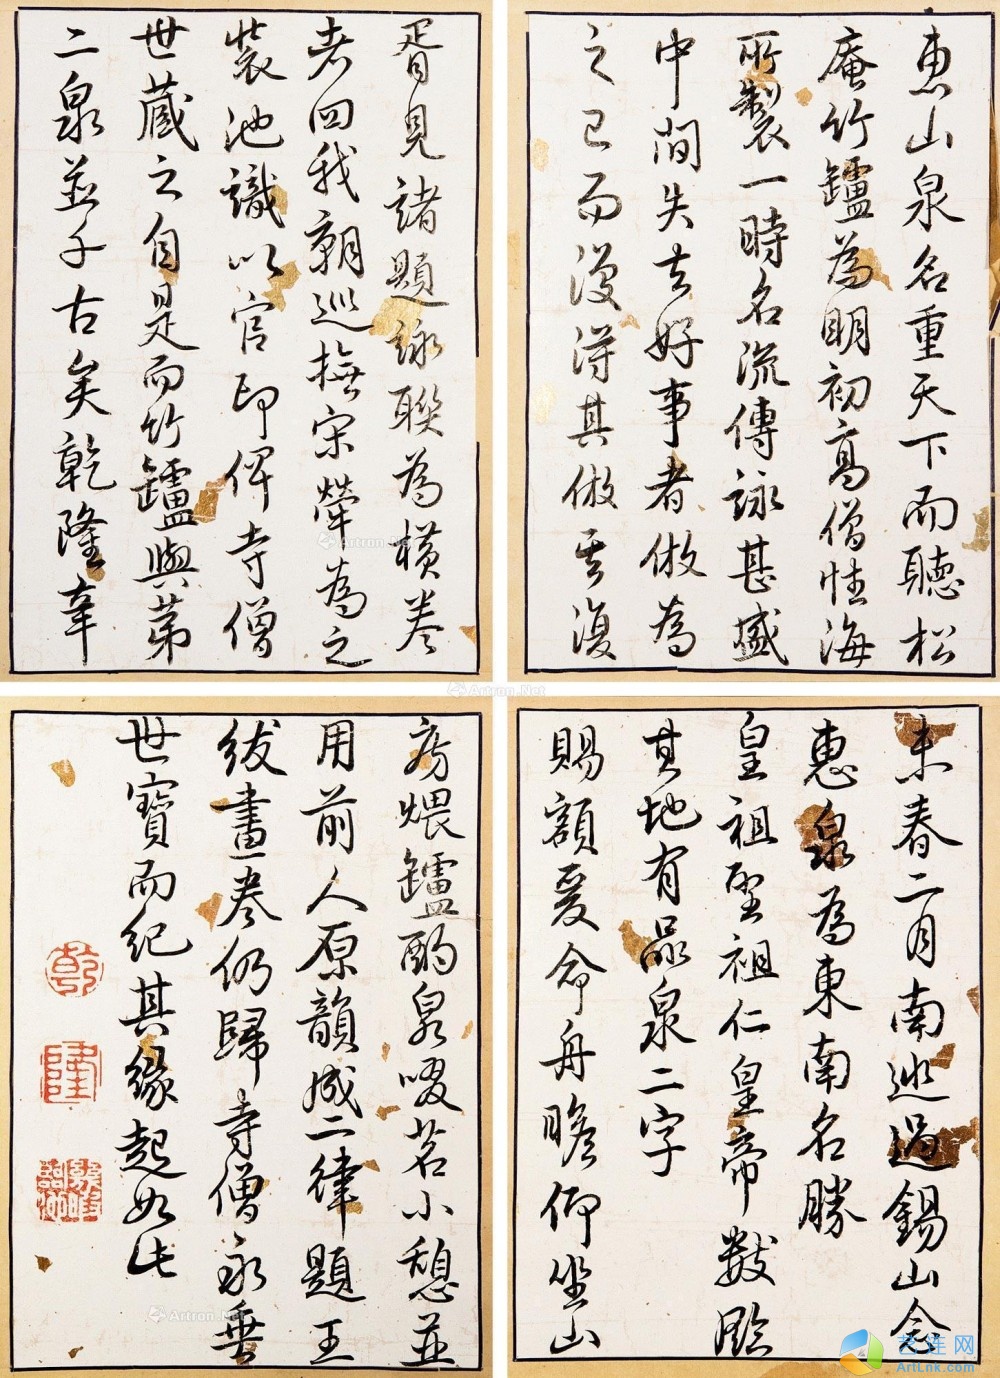 惠山泉名重天下而聽松
庵竹鑪為明初高僧性海
所製一時名流傳詠甚盛
中間失去好事者倣為
之已而復得其倣其復
胥見諸題詠聯為橫卷
者四我朝巡撫宋犖為之
裝池識以官印俾寺僧
世藏之自是而竹鑪與第
二泉並千古矣乾隆辛
未春二月南巡過錫山念
惠泉為東南名勝
皇祖聖祖仁皇帝數臨
其地有品泉二字
賜額爰命舟瞻仰坐山
房煨鑪酌泉啜茗小憩並
用前人原韻成二律題王
紱畫卷仍歸寺僧永垂
世寶而紀其緣起如此
乾
隆
Artron.Net
Artron.Net
Artron.Net
艺连网
ArtLnk.com